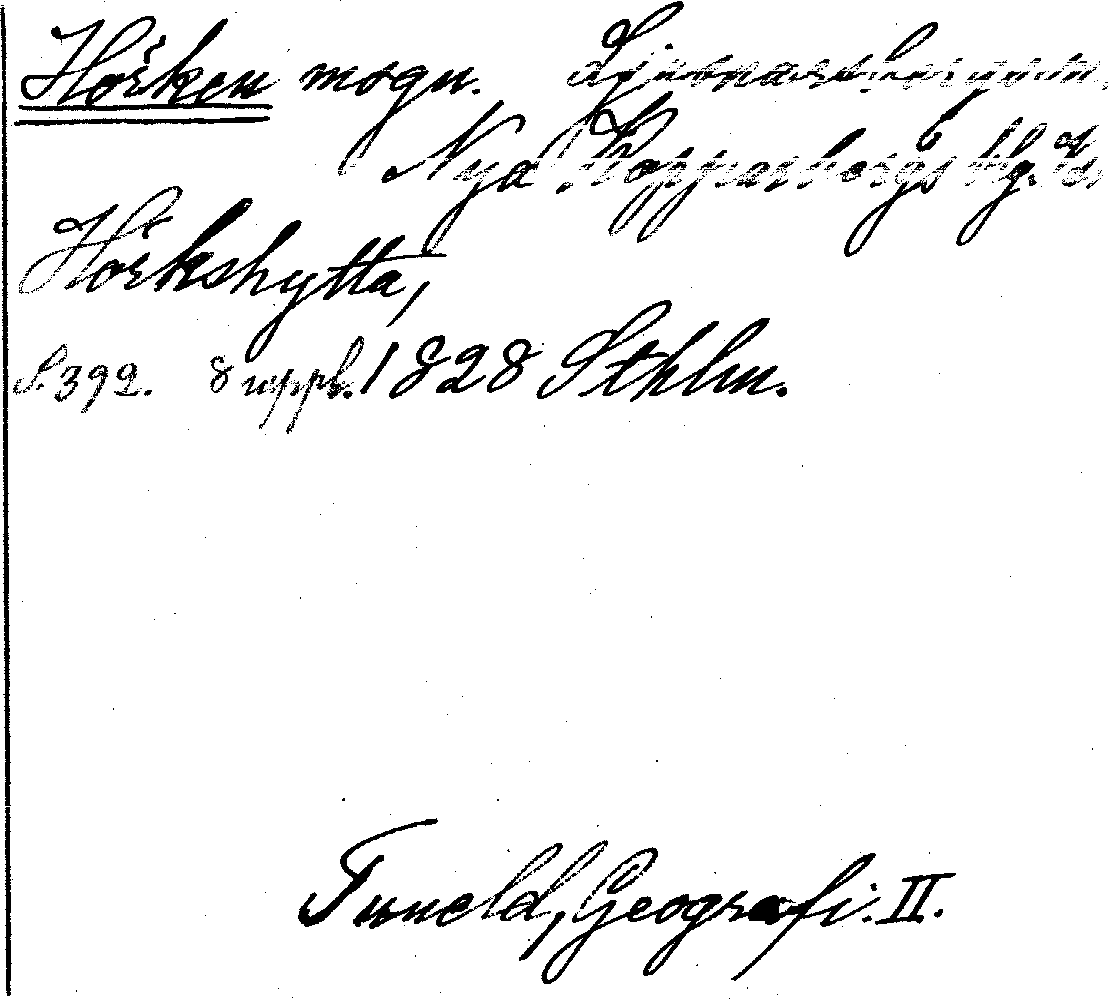 Hörken mogn. Ljusnarsbergs sn.
Nya Kopparbergs blg. Ö.
Hörkshytta,
S. 392. 8 uppl. 1828 Sthlm.
Tuneld, Geografi. II.